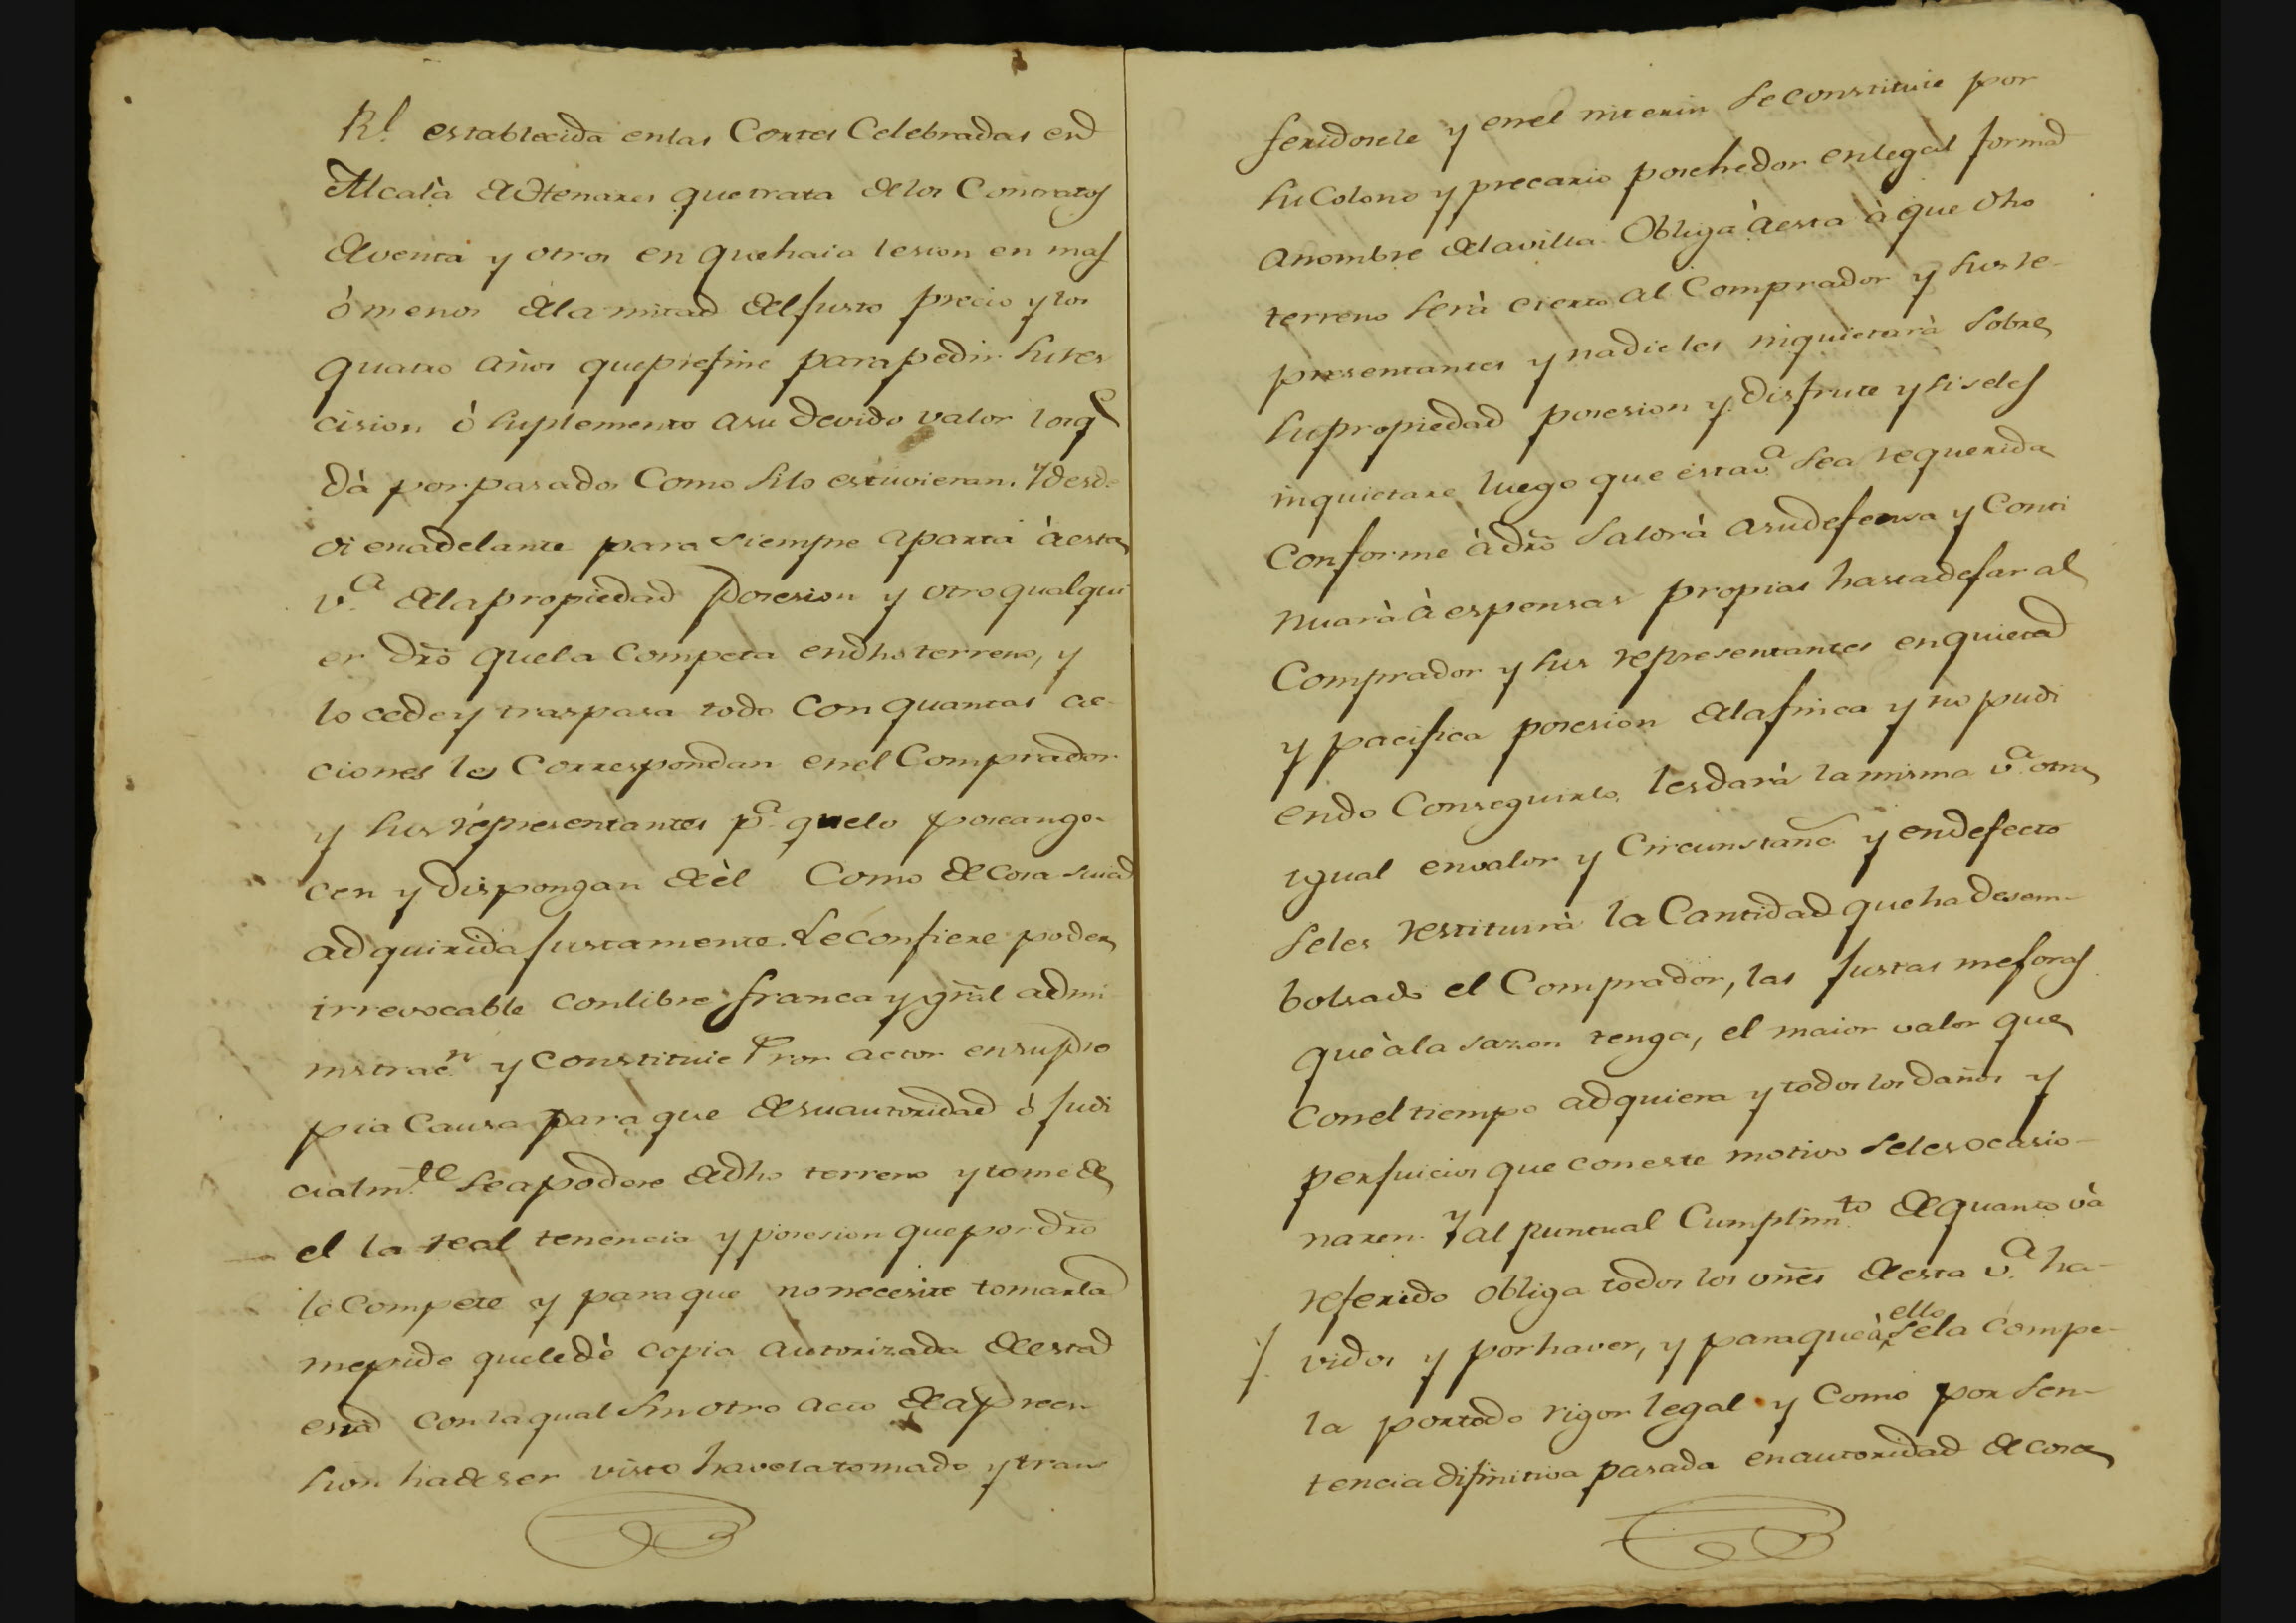 Rl. establecida en las Cortes Celebradas en
Alcalà de Henares que trata de los Contratos
de venta y otros en que haia lesion en mas
ò menos de la mitad del justo precio y los
quatro años que prefine para pedir su res
cision ò suplemento a su devido valor los q.e
dà por pasados Como si lo estuvieran. Y desde
oi en adelante para siempre aparta à esta
v.a de la propiedad posesion y otro qualqui
er dro que la Competa en dho terreno, y
lo cede y traspasa todo Con quantas ac-
ciones les Correspondan en el Comprador
y sus representantes p.a que lo posean go-
cen y dispongan de èl Como de cosa suia
adquirida justamente. Le confiere poder
irrevocable con libre franca y gral admi
nistrac.n y constituie Pror actor en su pro
pia Causa para que de su autoridad ò judi
cialm.te se apodere de dho terreno y tome de
el la real tenencia y posesion que por dro
le Compete y para que no necesite tomarla
me pide que le dè copia autorizada de esta
esra con la qual sin otro acto de apreen-
sion ha de ser visto haverla tomado y trans
feridosele y en el interin se constituie por
su Colono y precario posehedor en legal forma
a nombre de la villa. Obliga à esta à que dho
terreno serà cierto al Comprador y sus re-
presentantes y nadie les inquietarà sobre
su propiedad posesion y disfrute y si seles
inquietare luego que esta v.a sea requerida
Conforme à dro saldrà a su defensa y Conti
nuarà à espensas propias hasta dejar al
Comprador y sus representantes en quieta
y pacifica posesion de la finca y no pudi
endo Conseguirlo, les darà la misma v.a otra
igual en valor y Circunstanc.s y en defecto
seles restituirà la Cantidad que ha desem-
bolsado el Comprador, las justas mejoras
que à la sazon tenga, el maior valor que
con el tiempo adquiera y todos los daños y
perjuicios que con este motivo seles ocasio-
naren. Y al puntual Cumplim.to de quanto và
referido obliga todos los vnes de esta v.a ha-
vidos y por haver, y para que à ello se la compe-
la por todo rigor legal y Como por sen-
tencia difinitiva pasada en autoridad de cosa